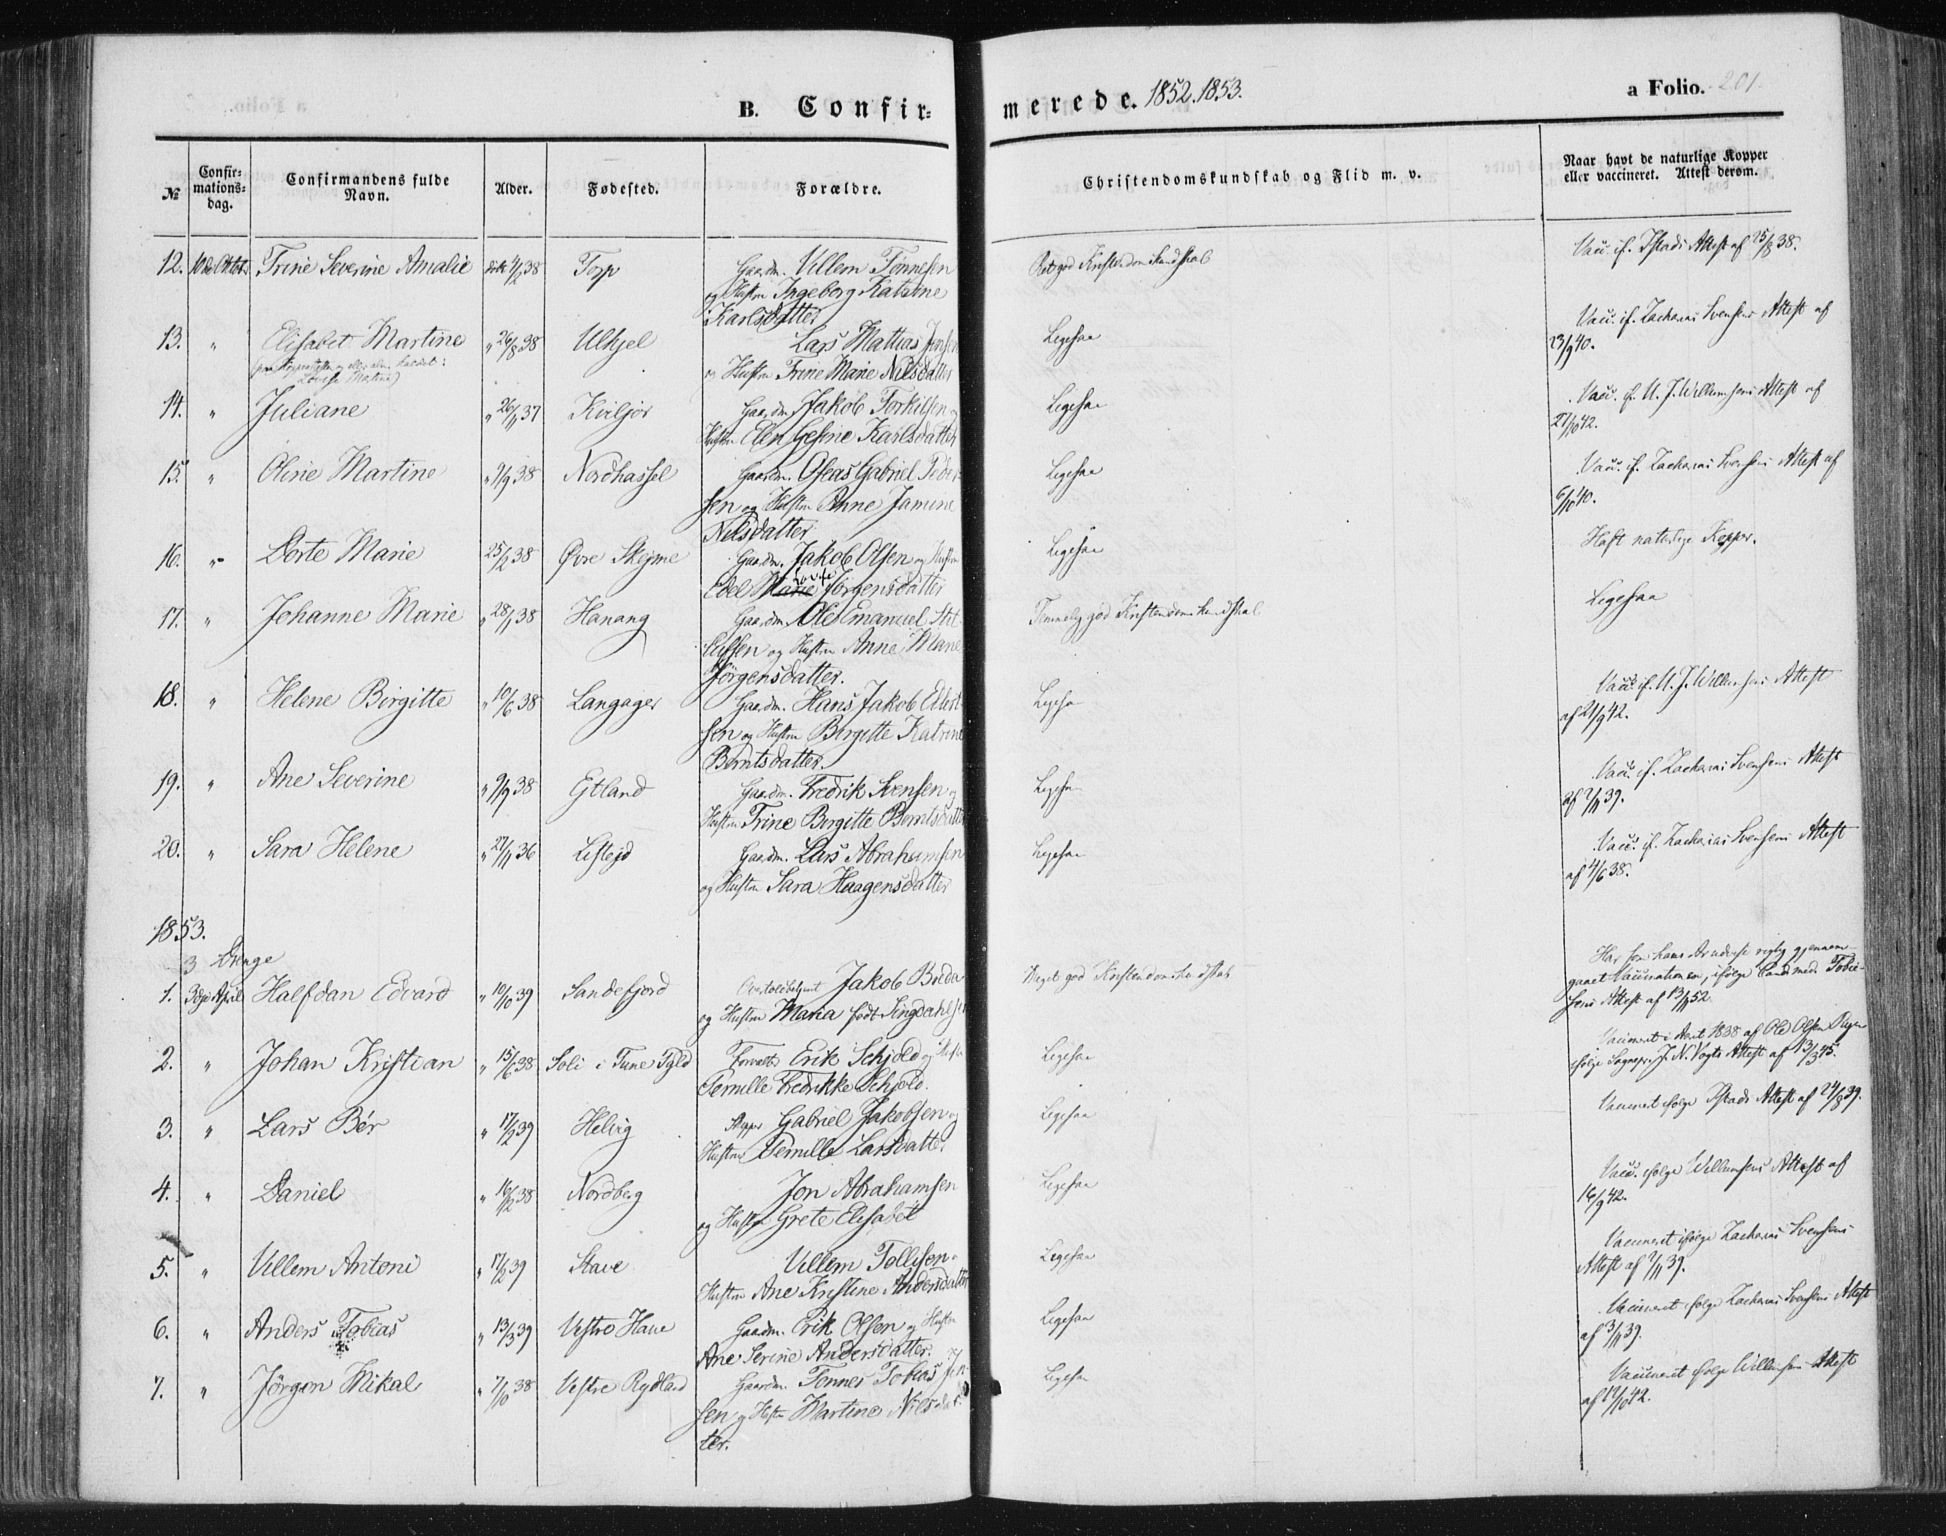 B. Confir-
merede. 1852. 1853.
a Folio. 201.
№
Confir-
mations-
dag.
Confirmandens fulde
Navn.
Alder.
Fødested.
Forældre.
Christendomskundskab og Flid m. v.
Naar havt de naturlige Kopper
eller vaccineret. Attest derom.
12. Trine Severine Amalie 38 Torp Gaardm. Villem Tønnesen
og Hustru Ingeborg Katrine
Karlsdatter
god Kristendomskundskab
Vacc. if. Attest af 38.
13. " Elisabet Martine " 26/8 38 Ulkjel Lars Mathias Jensen
og Hustru Trine Marie Nilsdatter
Ligesaa
Vacc. if. Zacharias Svensens Attest af
23/9 40.
14. " Juliane " 26/11 37 Kviljor Gaardm. Jakob Torkilsen og
Hustru Elen Gesine Karlsdatter
Ligesaa
Vacc. if. U. J. Willumsens Attest af
27/10 42.
15. " Oline Martine " 9/9 38 Nordhassel Gaardm. Oseas Gabriel Peder-
sen og Hustru Anne Jamine
Nilsdatter
Ligesaa
Vacc. if. Zacharias Svensens Attest af
6/10 40.
16. " Dorte Marie 25/2 38 Øvre Skejme Gaardm. Jakob Olsen og Hustru
Edel Marie Jørgensdatter
Ligesaa
Haft naturlige Kopper.
17. " Johanne Marie " 28/1 38 Hanang Gaardm. Ole Emanuel
og Hustru Anne Marie
Jørgensdatter.
Temmelig god Kristendomskundskab
Ligesaa
18. " Helene Birgitte " 10/6 38 Langager Gaardm. Hans Jakob Edert-
sen og Hustru Birgitte Katrine
Berntsdatter.
Ligesaa
Vacc. if. U. J. Willumsens Attest
af 21/9 42.
19. " Ane Severine " 9/9 38 Etland Gaardm. Fredrik Svensen og
Hustru Trine Birgitte Berntsdatter
Ligesaa
Vacc. if. Zacharias Svensens Attest
af 7/11 39.
20. " Sara Helene " 27/11 36 Listejd Gaardm. Lars Abrahamsen
og Hustru Sara Haagensdatter
Ligesaa
Vacc. if. Zacharias Svensens Attest
af 4/6 38.
1853.
3 Drenge
1. 3die April Halfdan Edvard " 10/10 39 Sandefjord Overtoldbetjent Jakob Breda
og Hustru Maria født
Meget god Kristendomskundskab
Har rigtig gjennem-
gaaet Vaccinationen, ifølge Tobie-
sens Attest af 13/11 52.
2. " Johan Kristian " 15/6 38 Soli i Tune Erik Schjold og Hustru
Pernille Fredrikke Schjold.
Ligesaa
Vaccineret i 1838 af Ole Olsen
ifølge J. N. Vogts Attest af 13/3 45.
3. " Lars Bér " 17/2 39 Helvig Gabriel Jakobsen og
Hustru Pernille Larsdatter
Ligesaa
Vaccineret ifølge Attest af 24/8 39.
4. " Daniel " 16/12 38 Nordberg Jon Abrahamsen
og Hustru Grete Elisabet
Ligesaa
Vacc. ifølge Willumsens Attest af
16/9 42.
5. " Villem Antoni " 17/2 39 Stave Villem Tollisen
Hustru Ane Kristine Andersdatter
Ligesaa
Vaccineret ifølge Zacharias Svensens
Attest af 7/11 39.
6. " Anders Tobias " 13/3 39 Vestre Haue Gaardm. Erik Olsen og Hustru
Ane Serine Andersdatter.
Ligesaa
Vaccineret ifølge Zacharias Svensens Attest
af 3/11 39.
7. " Jørgen Mikal " 7/10 38 Vestre Rydland Gaardm. Tønnes Tobias
sen og Hustru Martine Nilsdat-
ter.
Ligesaa
Vaccineret ifølge Willumsens Attest
af 12/10 42.